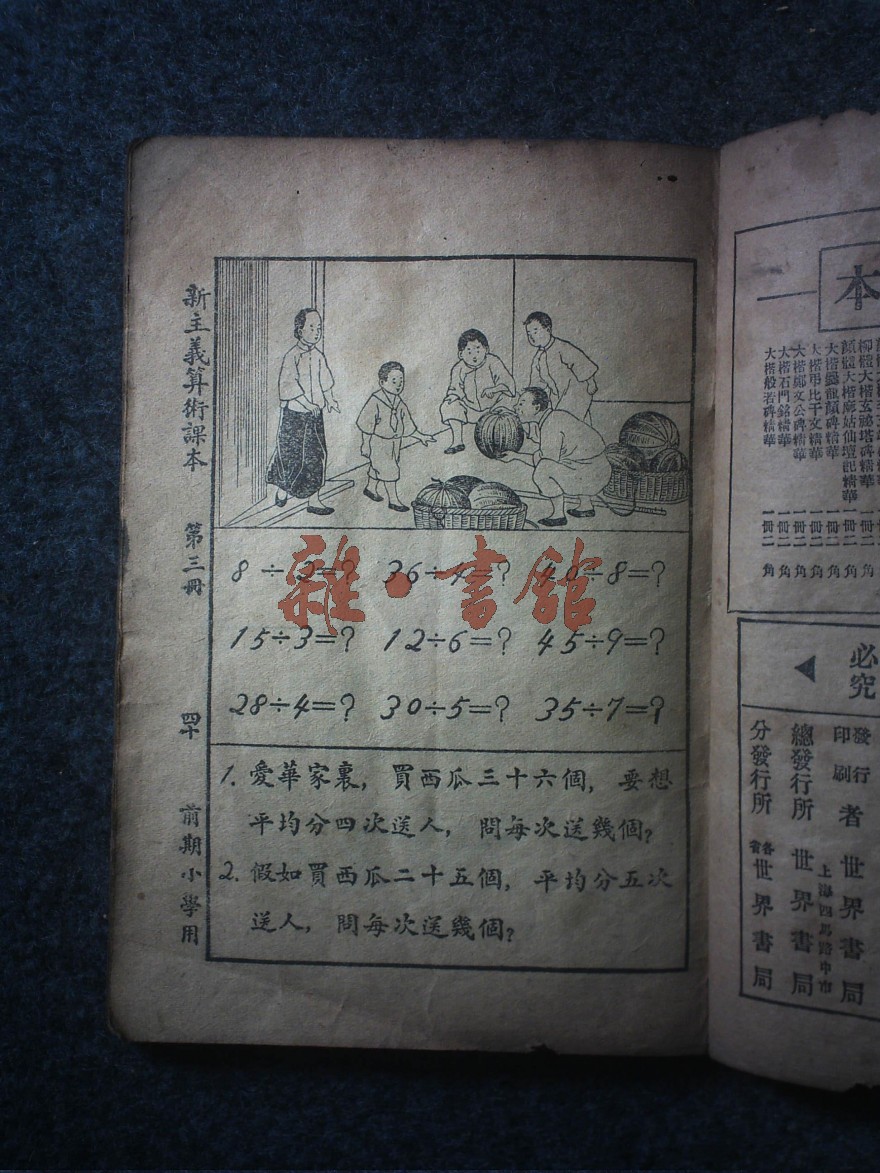 新主義算術課本 第三冊 四十 前期小學用
36÷4=? 40÷8=?
15÷3=? 12÷6=? 45÷9=?
28÷4=? 30÷5=? 35÷7=?
1. 愛華家裏, 買西瓜三十六個, 要想
平均分四次送人, 問每次送幾個?
2. 假如買西瓜二十五個, 平均分五次
送人, 問每次送幾個?
雜·書館
本一
柳體大楷玄秘塔碑精華 一冊二角
顏體大楷麻姑仙壇記精華 一冊二角
大楷爨龍顏碑精華 一冊二角
大楷弔比干文精華 一冊二角
大楷鄭文公碑精華 一冊二角
大楷石門銘精華 一冊二角
大楷般若碑精華 一冊二角
必究
發行印刷者 世界書局
上海四馬路中市
總發行所 世界書局
分發行所 各省世界書局